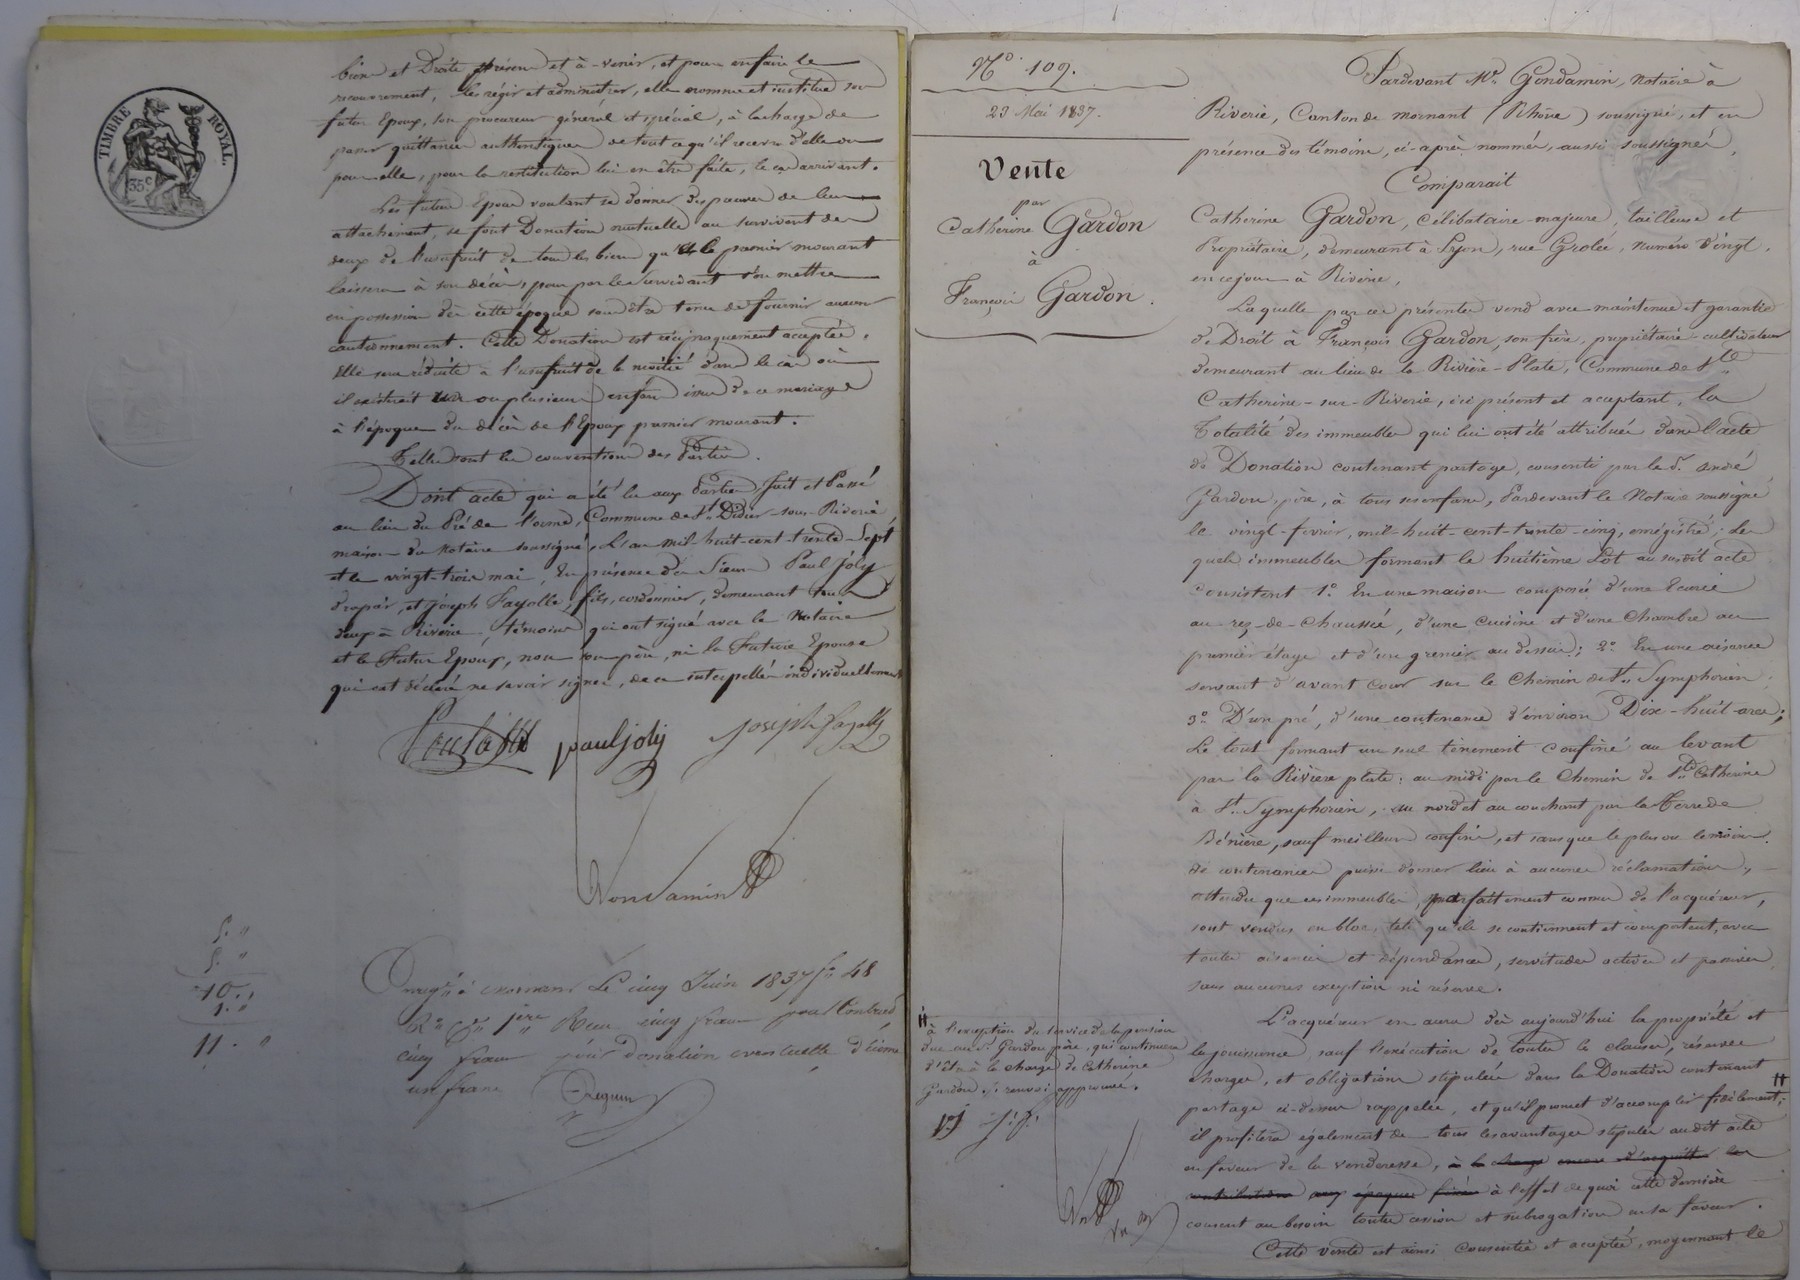 TIMBRE ROYAL.
35c
biens et Droits présens et à-venir, et pour en faire le
recouvrement, les régir et administrer, elle nomme et institue son
futur Epoux, son procureur général et spécial, à la charge de
passer quittances authentiques de tout ce qu'il recevra d'elle ou
pour elle, pour la restitution lui en être faite, le cas arrivant.
Les futurs Epoux voulant se donner des preuves de leur
attachement, se font Donation mutuelle au survivant des
deux de l'usufruit de tous les biens qu' le premier mourant
laissera à son décès, pour par le survivant s'en mettre
en possession dès cette époque sans être tenu de fournir aucun
cautionnement. Cette Donation est réciproquement acceptée.
Elle sera réduite à l'usufruit de la moitié dans le cas où
il existerait un ou plusieurs enfans issus de ce mariage
à l'époque du décès de l'Epoux premier mourant.
Telles sont les conventions des Parties.
Dont acte qui a été lu aux Parties, fait et Passé
au lieu du Pré de l'orme, Commune de St. Didier-sous-Riverie
maison du Notaire soussigné, L'an mil-huit-cent-trente-Sept
et le vingt-trois mai, En présence des Sieurs Paul Joly
drapier, et Joseph Fayolle, fils, cordonnier, demeurant tous
deux à Riverie, témoins qui ont signé avec le Notaire
et le Futur Epoux, non son père, ni la Future Epouse
qui ont déclaré ne savoir signer, de ce interpellés individuellement
paul joly
Joseph fayolle
Gondamin
5. "
5. "
10. "
1. "
11. "
Enregé à Mornant Le cinq Juin 1837 fo 48
Ro Reçu cinq francs pour Contrat,
cinq francs pour donation éventuelle, décime
un franc
No. 109.
23 Mai 1837.
Vente
par
Catherine Gardon
à
François Gardon.
à l'exception du service de la pension
due au Sr. Gardon père, qui continuera
d'être à la charge de Catherine
Gardon. renvoi approuvé.
Pardevant Me. Gondamin, Notaire à
Riverie, Canton de Mornant (Rhône) soussigné, et en
présence des témoins, ci-après nommés, aussi soussignés,
Comparait
Catherine Gardon, Célibataire majeure, tailleuse et
Propriétaire, demeurant à Lyon, rue Grolée, Numéro vingt,
en ce jour à Riverie,
Laquelle par ces présentes vend avec maintenue et garantie
de Droit à François Gardon, son frère, propriétaire-cultivateur
demeurant au lieu de la Rivière-Plate, Commune de Ste
Catherine-sur-Riverie, ici présent et acceptant, la
Totalité des immeubles qui lui ont été attribués dans l'acte
de Donation contenant partage, consenti par le Sr. André
Gardon, père, à tous ses enfans, Pardevant le Notaire soussigné
le vingt-fevrier, mil-huit-cent-trente-cinq, enregistré; Les
quels immeubles formant le huitième Lot au susdit acte
Consistent 1o. En une maison composée d'une Ecurie
au rez-de-chaussée, d'une cuisine et d'une Chambre au
premier étage et d'un grenier au dessus; 2o. En une aisance
servant d'avant Cour sur le Chemin de St. Symphorien;
3o. D'un pré, d'une contenance d'environ Dix-huit ares;
Le tout formant un seul tènement confiné au levant
par la Rivière plate: au midi par le Chemin de Ste Catherine
à St. Symphorien, au nord et au couchant par la Terre de
Bénière, sauf meilleurs confins, et sans que le plus ou le moins
de contenance puisse donner lieu à aucune réclamation,
attendu que ces immeubles, parfaitement connus de l'acquéreur,
sont vendus en bloc, tels qu'ils se contiennent et comportent, avec
toutes aisances et dépendances, servitudes actives et passives,
sans aucunes exception ni réserve.
L'acquéreur en aura dès aujourd'hui la propriété et
la jouissance, sauf l'exécution de toutes les clauses, réserves
charges, et obligations stipulées dans la Donation contenant
partage ci-dessus rappelée, et qu'il promet d'accomplir fidèlement;
il profitera également de tous les avantages stipulés au dit acte
en faveur de la venderesse, à la charge encore d'acquitter les
contributions aux époques fixées à l'effet de quoi cette dernière
consent au besoin toutes cession et subrogation en sa faveur.
Cette vente est ainsi Consentie et acceptée, moyennant le